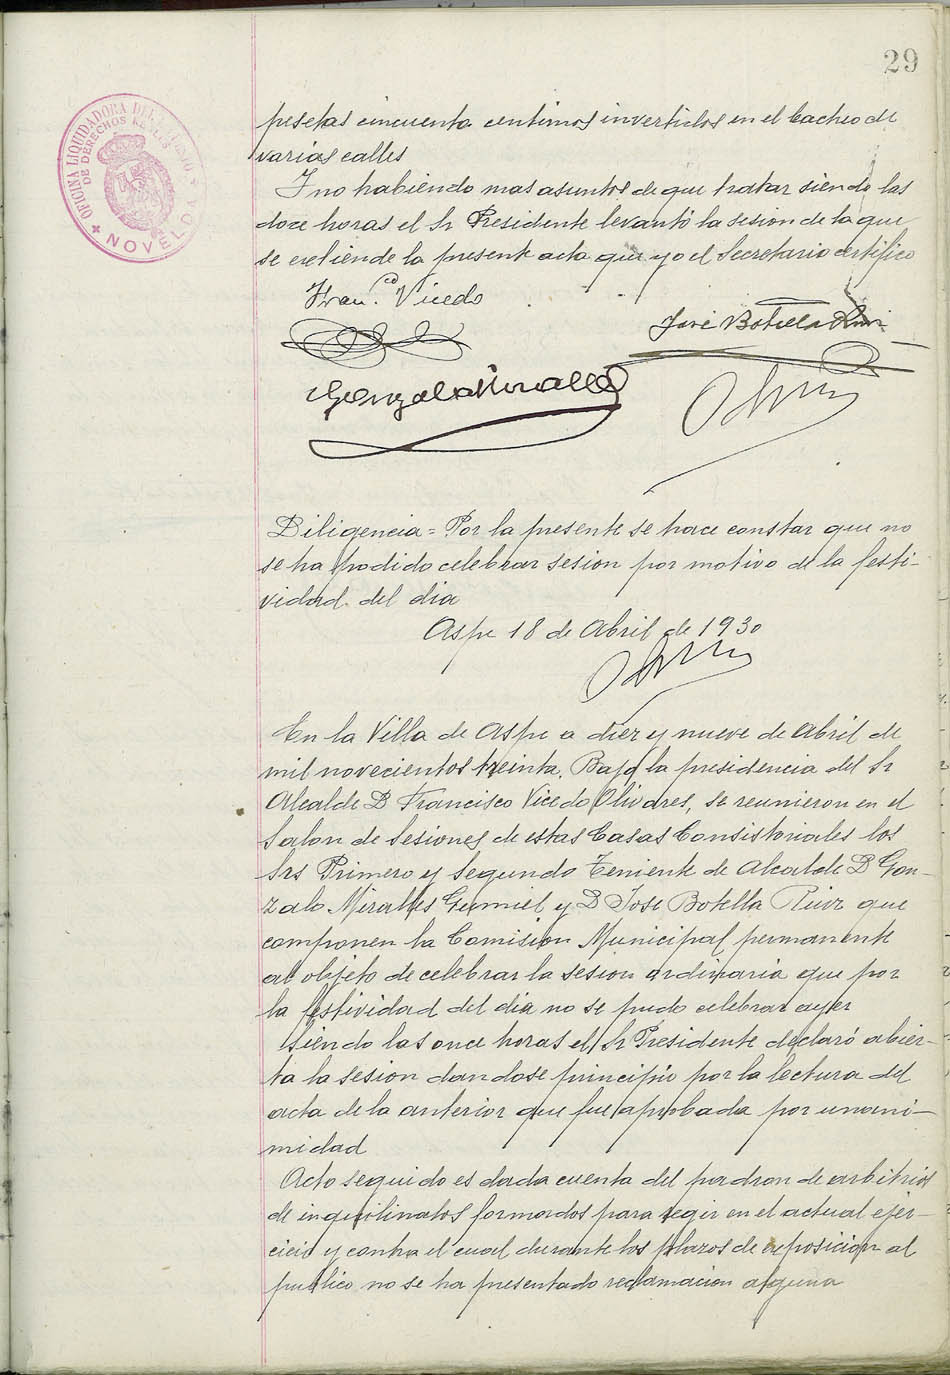 29
OFICINA LIQUIDADORA DEL
DE DERECHOS REALES
NOVELDA
pesetas cincuenta centimos invertidos en el bacheo de
varias calles
Y no habiendo mas asuntos de que tratar siendo las
doce horas el Sr Presidente levantó la sesion de la que
se extiende la presente acta que yo el Secretario certifico
Fran.co Vicedo
José Botella
Gonzalo Miralles
Diligencia = Por la presente se hace constar que no
se ha podido celebrar sesion por motivo de la festi-
vidad del dia
Aspe 18 de Abril de 1930
En la Villa de Aspe a diez y nueve de Abril de
mil novecientos treinta. Bajo la presidencia del Sr
Alcalde D Francisco Vicedo Olivares, se reunieron en el
Salon de Sesiones de estas Casas Consistoriales los
Srs Primero y Segundo Teniente de Alcalde D Gon-
zalo Miralles Gumiel y D Jose Botella que
componen la Comision Municipal permanente
al objeto de celebrar la sesion ordinaria que por
la festividad del dia no se pudo celebrar ayer
Siendo las once horas el Sr Presidente declaró abier-
ta la sesion dandose principio por la lectura del
acta de la anterior que fue aprobada por unani-
midad
Acto seguido es dada cuenta del padron de arbitrios
de inquilinatos formados para regir en el actual ejer-
cicio y contra el cual durante los plazos de exposicion al
publico no se ha presentado reclamacion alguna